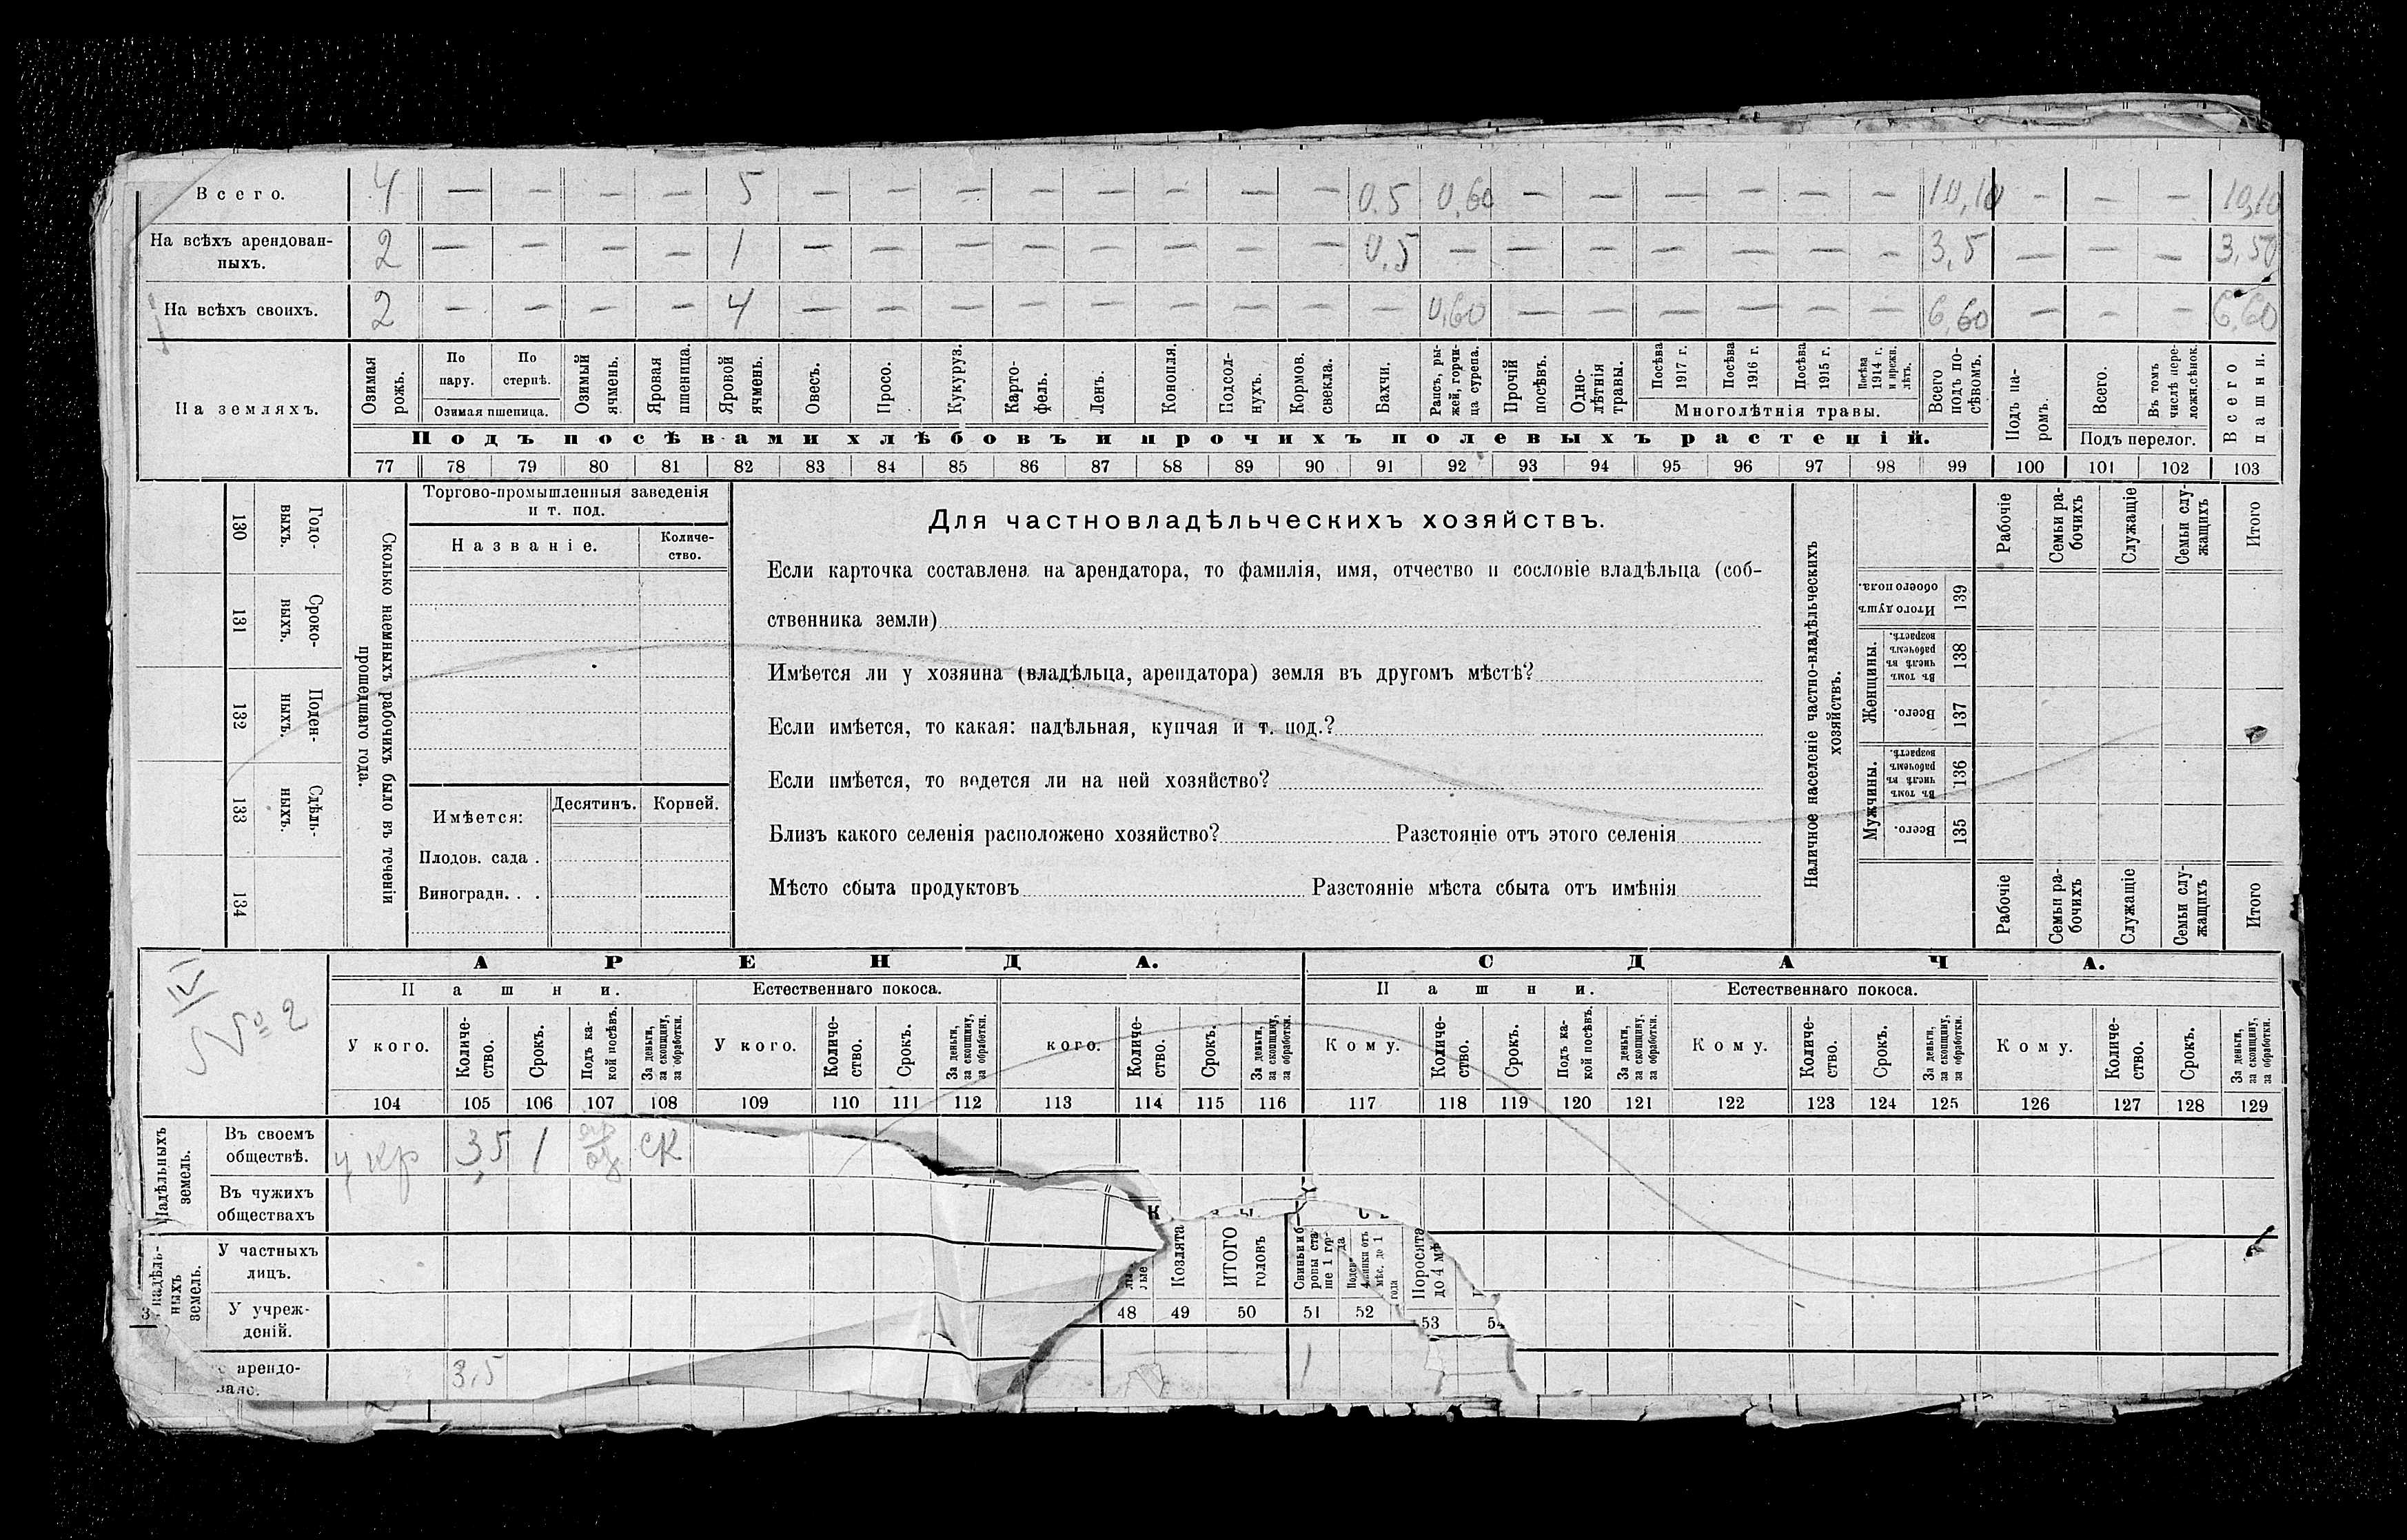 Всего. 4 — — — — 5 — — — — — — — — 0.5 0,60 — — — — — — 10,10 — — — 10,10
На всѣхъ арендован-
ныхъ. 2 — — — 1 — — — — — — — — 0.5 — — — — — — — 3,5 — — — 3,50
На всѣхъ своихъ. 2 — — — — 4 — — — — — — — — — 0,60 — — — — — — 6,60 — — — 6,60
На земляхъ.
Озимая рожь.
По пару.
По стернѣ.
Озимая пшеница.
Озимый ячмень.
Яровая пшеница.
Яровой ячмень.
Овесъ.
Просо.
Кукуруз.
Карто-
фель.
Ленъ.
Конопля.
Подсол-
нухъ.
Кормов. свекла.
Бахчи.
Рапсъ, ры-
жей, горчи-
ца сурепа.
Прочій посѣвъ.
Одно-
лѣтнія травы.
Посѣва 1917 г.
Посѣва 1916 г.
Посѣва 1915 г.
Посѣва 1914 г. и прежн. лѣтъ.
Многолѣтнія травы.
Всего подъ по-
сѣвомъ.
Подъ па-
ромъ.
Всего.
Въ томъ числѣ пере-
ложн.сѣнок.
Подъ перелог.
Всего пашни.
Подъ посѣвами хлѣбовъ и прочихъ полевыхъ растеній.
77 78 79 80 81 82 83 84 85 86 87 88 89 90 91 92 93 94 95 96 97 98 99 100 101 102 103
130 Годо-
выхъ.
131 Сроко-
ныхъ.
132 Поден-
ныхъ.
133 Сдѣль-
ныхъ.
134
Сколько наемныхъ рабочихъ было въ теченіи
прошедшаго года.
Торгово-промышленныя заведенія
и т. под.
Названіе.
Количе-
ство.
Имѣется:
Десятинъ. Корней.
Плодов. сада .
Виноградн. . .
Для частновладѣльческихъ хозяйствъ.
Если карточка составлена на арендатора, то фамилія, имя, отчество и сословіе владѣльца (соб-
ственника земли)
Имѣется ли у хозяина (владѣльца, арендатора) земля въ другомъ мѣстѣ?
Если имѣется, то какая: надѣльная, купчая и т. под.?
Если имѣется, то ведется ли на ней хозяйство?
Близъ какого селенія расположено хозяйство? Разстояніе отъ этого селенія
Мѣсто сбыта продуктовъ Разстояніе мѣста сбыта отъ имѣнія
Наличное населеніе частно-владѣльческихъ
хозяйствъ.
Рабочіе
Семьи ра-
бочихъ
Служащіе
Семьи слу-
жащихъ
Итого
Итого душъ обоего пола. 139
Женщины.
Въ томъ числѣ въ рабочемъ возрастѣ. 138
Всего. 137
Мужчины.
Въ томъ числѣ въ рабочемъ возрастѣ. 136
Всего. 135
Рабочіе
Семьи ра-
бочихъ
Служащіе
Семьи слу-
жащихъ
Итого
IV
№ 2
АРЕНДА. СДАЧА.
Пашни. Естественнаго покоса. Пашни. Естественнаго покоса.
У кого.
Количе-
ство.
Срокъ.
Подъ ка-
кой посѣвъ.
За деньги,
за скопщину,
за обработки.
У кого.
Количе-
ство.
Срокъ.
За деньги,
за скопщину,
за обработки.
кого.
Количе-
ство.
Срокъ.
За деньги,
за скопщину,
за обработки.
Кому.
Количе-
ство.
Срокъ.
Подъ ка-
кой посѣвъ.
За деньги,
за скопщину,
за обработки.
Кому.
Количе-
ство.
Срокъ.
За деньги,
за скопщину,
за обработки.
Кому.
Количе-
ство.
Срокъ.
За деньги,
за скопщину,
за обработки.
104 105 106 107 108 109 110 111 112 113 114 115 116 117 118 119 120 121 122 123 124 125 126 127 128 129
Надѣльныхъ
земель.
Въ своемъ
обществѣ. у кр 3,5 1 яр оз ск
Въ чужихъ
обществахъ
надѣль-
ныхъ
земель.
У частныхъ
лицъ.
У учреж-
деній.
арендо-
вано. 3,5
Козлята
ИТОГО
головъ
Свиньи и б
ровы ста-
ше 1 го-
да
свинки отъ
мѣс. до 1
года
Поросята
до 4 мѣ
48 49 50 51 52 53 54
1